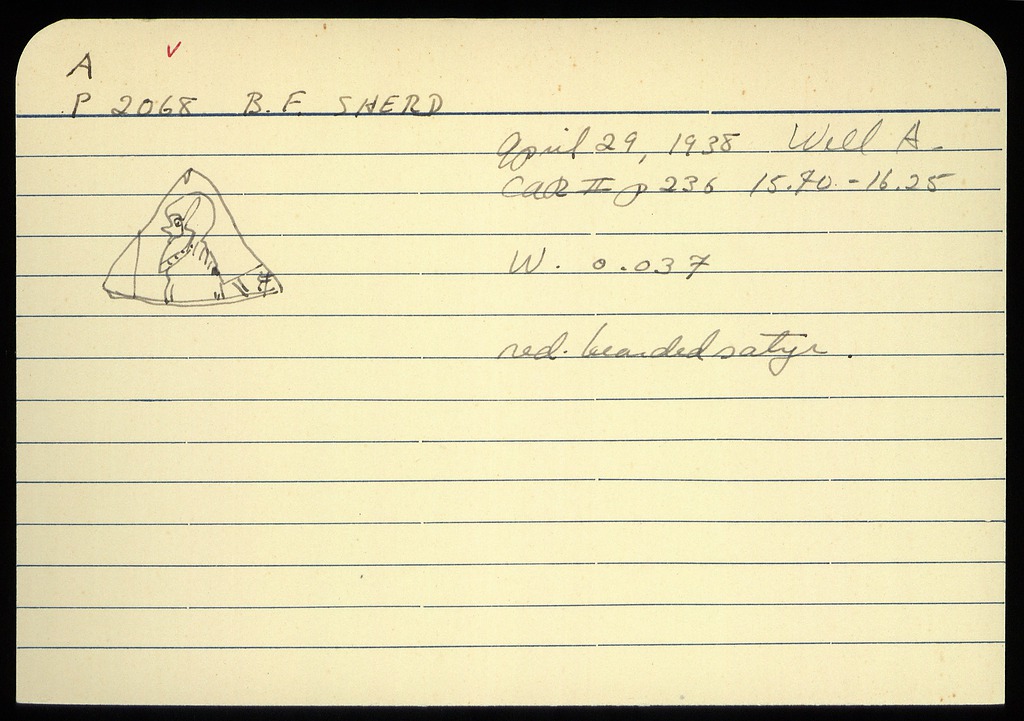 A
P 2068 B.F. SHERD
April 29, 1938 Well A.
CAR II p 236 15.70 - 16.25
W. 0.037
red-bearded satyr.